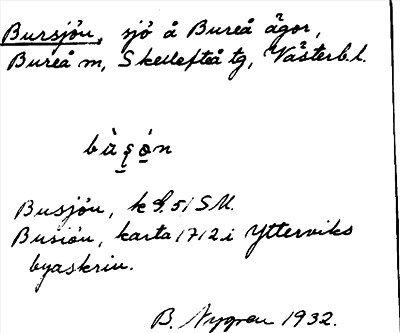 Bursjön, sjö å Bureå ägor,
Bureå sn, Skellefteå tg, Västerb. l.
Busjön, k
Busiön, karta 1712 i Ytterviks
byaskrin.
B. Nygren 1932.